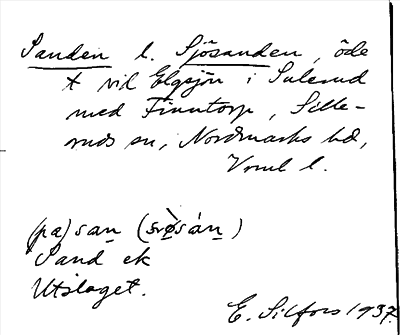 Sanden l. Sjösanden, öde
t vid Elgsjön i Sulerud
med Finntorp, Sille-
ruds sn, Nordmarks hd,
Vrml l.
(pa) san (svø̀sán)
Sand ek
Utslaget.
E. Silfors 1937.